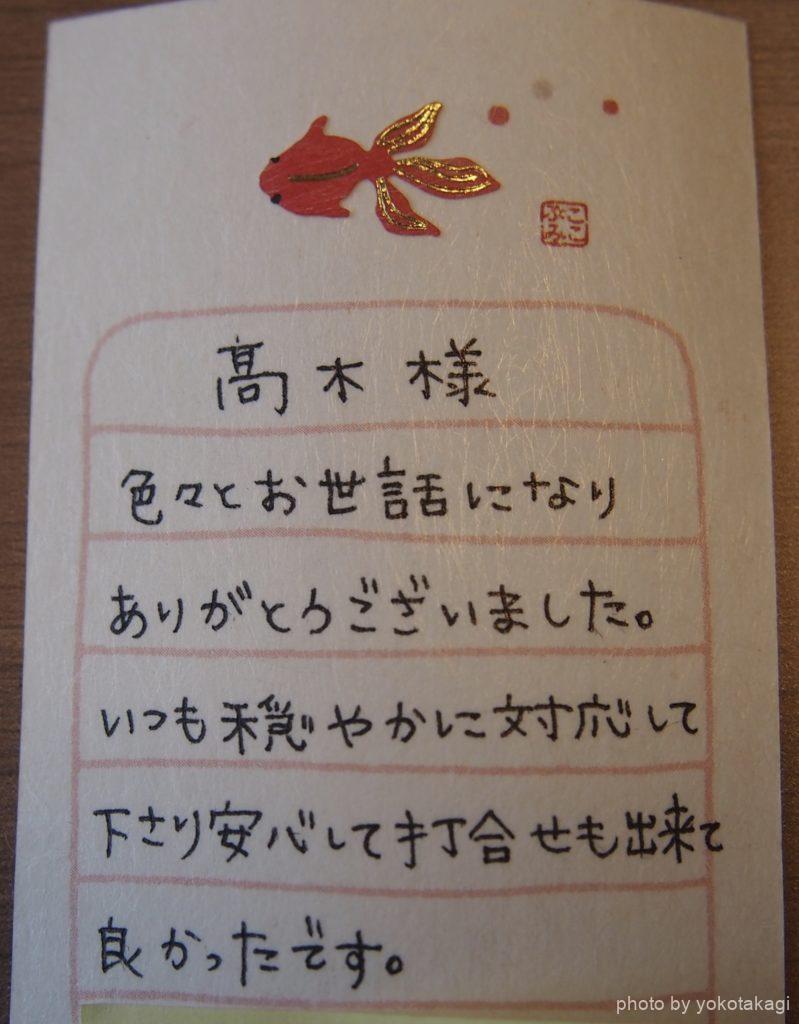 ここ
ぶみ
高木様
色々とお世話になり
ありがとうございました。
いつも穏やかに対応して
下さり安心して打合せも出来て
良かったです。
photo by yokotakagi